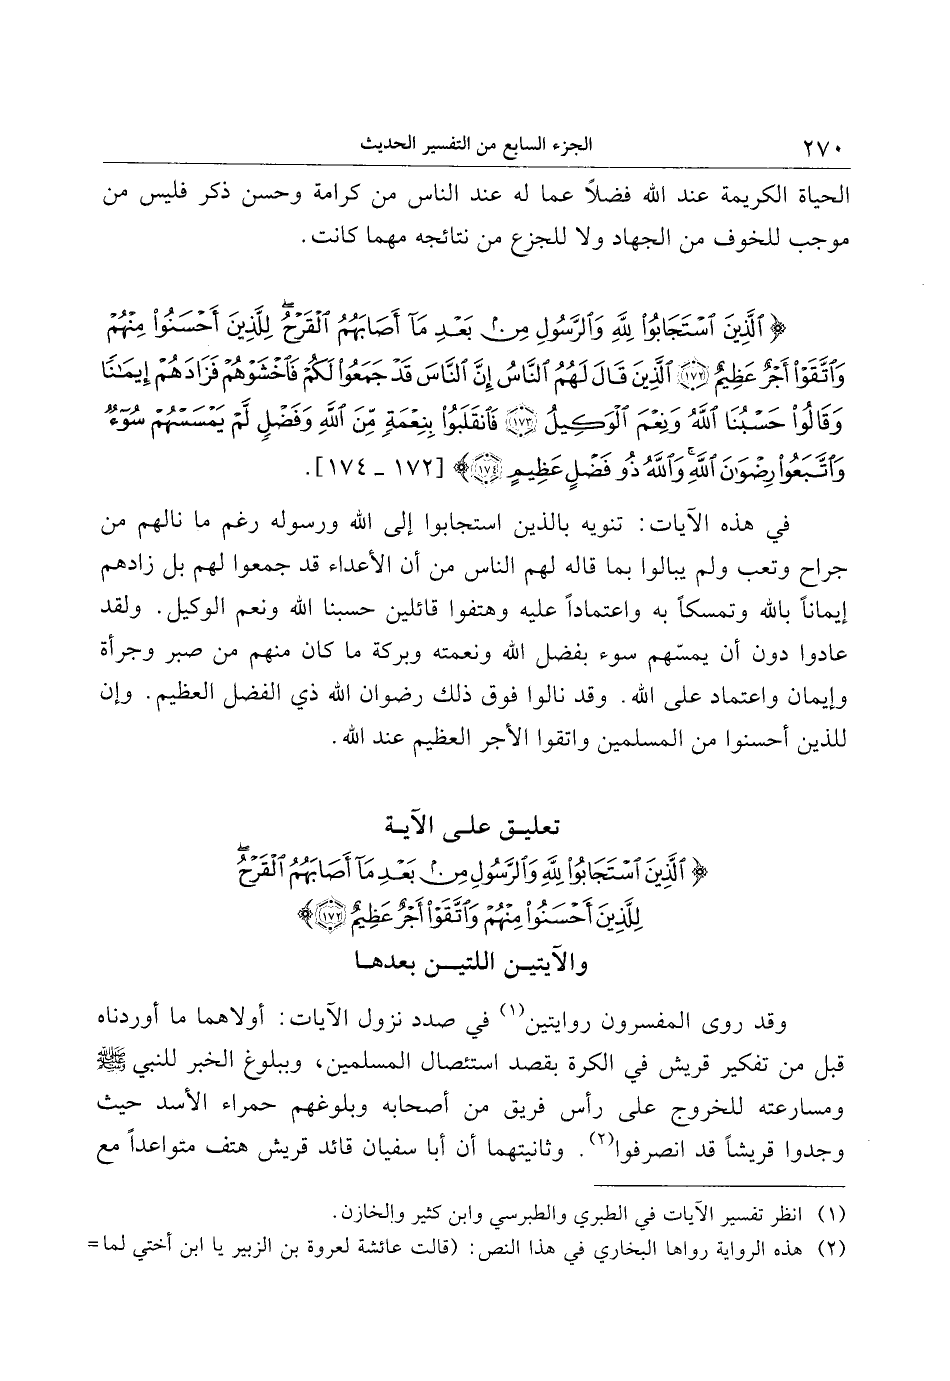 ٢٧٠ الجزء السابع من التفسير الحديث
الحياة الكريمة عند الله فضلاً عما له عند الناس من كرامة وحسن ذكر فليس من
موجب للخوف من الجهاد ولا للجزع من نتائجه مهما كانت.
﴿ ٱلَّذِينَ ٱسْتَجَابُوا۟ لِلَّهِ وَٱلرَّسُولِ مِنۢ بَعْدِ مَآ أَصَابَهُمُ ٱلْقَرْحُ ۚ لِلَّذِينَ أَحْسَنُوا۟ مِنْهُمْ
وَٱتَّقَوْا۟ أَجْرٌ عَظِيمٌ ﴿١٧٢﴾ ٱلَّذِينَ قَالَ لَهُمُ ٱلنَّاسُ إِنَّ ٱلنَّاسَ قَدْ جَمَعُوا۟ لَكُمْ فَٱخْشَوْهُمْ فَزَادَهُمْ إِيمَٰنًا
وَقَالُوا۟ حَسْبُنَا ٱللَّهُ وَنِعْمَ ٱلْوَكِيلُ ﴿١٧٣﴾ فَٱنقَلَبُوا۟ بِنِعْمَةٍ مِّنَ ٱللَّهِ وَفَضْلٍ لَّمْ يَمْسَسْهُمْ سُوٓءٌ
وَٱتَّبَعُوا۟ رِضْوَٰنَ ٱللَّهِ ۗ وَٱللَّهُ ذُو فَضْلٍ عَظِيمٍ ﴿١٧٤﴾ ﴾ [١٧٢ ـ ١٧٤].
في هذه الآيات: تنويه بالذين استجابوا إلى الله ورسوله رغم ما نالهم من
جراح وتعب ولم يبالوا بما قاله لهم الناس من أن الأعداء قد جمعوا لهم بل زادهم
إيماناً بالله وتمسكاً به واعتماداً عليه وهتفوا قائلين حسبنا الله ونعم الوكيل. ولقد
عادوا دون أن يمسّهم سوء بفضل الله ونعمته وبركة ما كان منهم من صبر وجرأة
وإيمان واعتماد على الله. وقد نالوا فوق ذلك رضوان الله ذي الفضل العظيم. وإن
للذين أحسنوا من المسلمين واتقوا الأجر العظيم عند الله.
تعليق على الآية
﴿ ٱلَّذِينَ ٱسْتَجَابُوا۟ لِلَّهِ وَٱلرَّسُولِ مِنۢ بَعْدِ مَآ أَصَابَهُمُ ٱلْقَرْحُ ۚ
لِلَّذِينَ أَحْسَنُوا۟ مِنْهُمْ وَٱتَّقَوْا۟ أَجْرٌ عَظِيمٌ ﴿١٧٢﴾ ﴾
والآيتين اللتين بعدها
وقد روى المفسرون روايتين(١) في صدد نزول الآيات: أولاهما ما أوردناه
قبل من تفكير قريش في الكرة بقصد استئصال المسلمين، وببلوغ الخبر للنبي ﷺ
ومسارعته للخروج على رأس فريق من أصحابه وبلوغهم حمراء الأسد حيث
وجدوا قريشاً قد انصرفوا(٢). وثانيتهما أن أبا سفيان قائد قريش هتف متواعداً مع
(١) انظر تفسير الآيات في الطبري والطبرسي وابن كثير والخازن.
(٢) هذه الرواية رواها البخاري في هذا النص: (قالت عائشة لعروة بن الزبير يا ابن أختي لما=